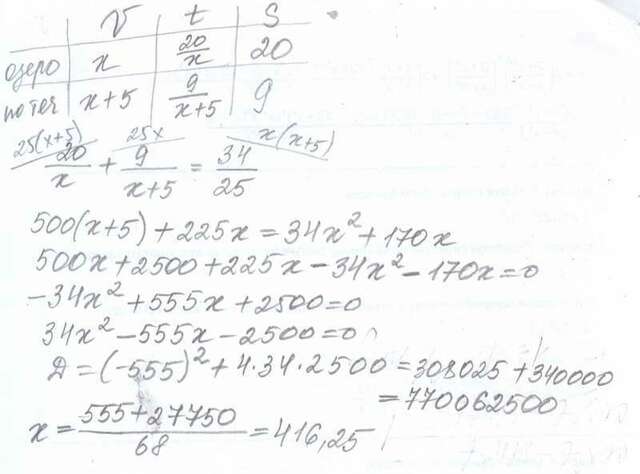 V t S
озеро x 20/x 20
по теч x+5 9/(x+5) 9
25(x+5) 25x x(x+5)
20/x + 9/(x+5) = 34/25
500(x+5)+225x=34x²+170x
500x+2500+225x-34x²-170x=0
-34x²+555x+2500=0
34x²-555x-2500=0
Д=(-555)²+4·34·2500=308025+340000
=770062500
x=(555+27750)/68=416,25